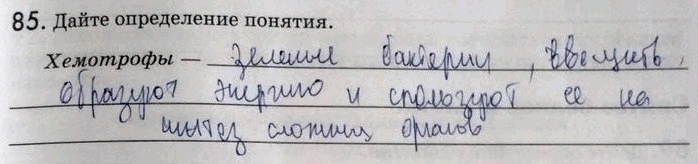 85. Дайте определение понятия.
Хемотрофы — зеление бактерии,
образуют энергию и спользуют ее на
синтез сложних органов